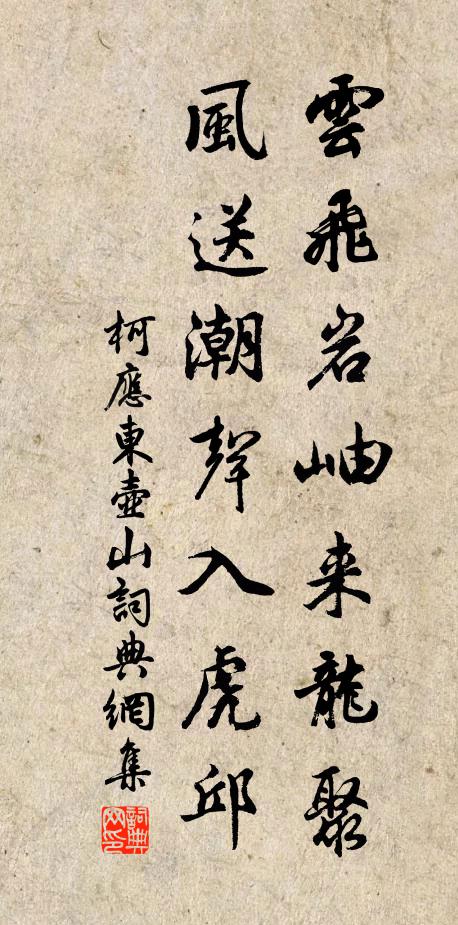 雲飛岩岫来龍聚
風送潮聲入虎邱
柯應東壺山詞典網集
詞典网印